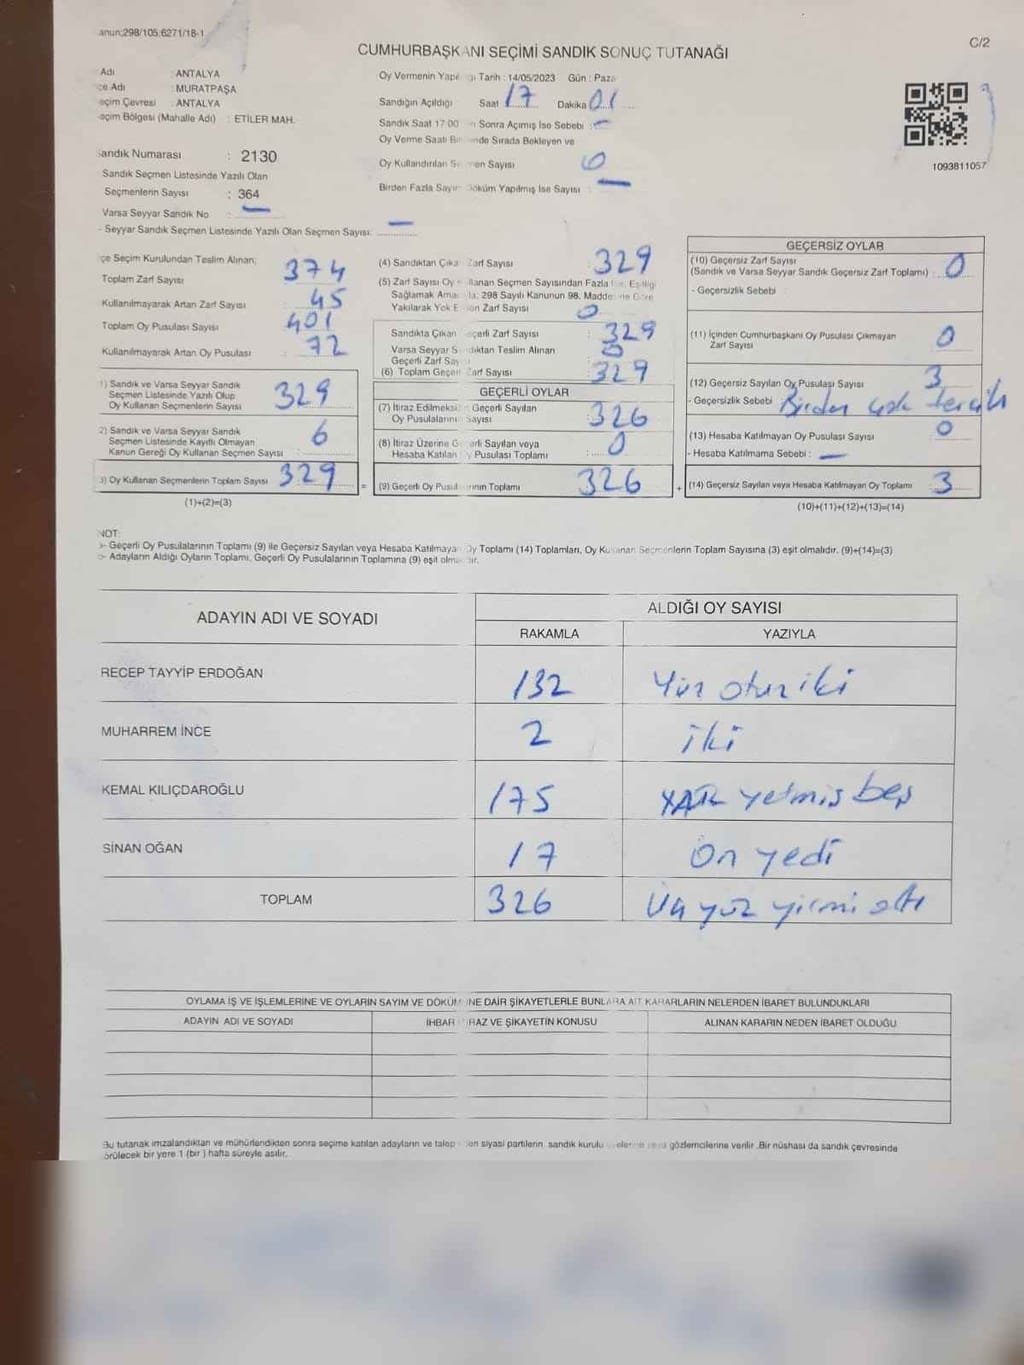 anun:298/105:6271/18-1
C/2
CUMHURBAŞKANI SEÇİMİ SANDIK SONUÇ TUTANAĞI
Adı : ANTALYA
çe Adı : MURATPAŞA
eçim Çevresi : ANTALYA
eçim Bölgesi (Mahalle Adı) : ETİLER MAH.
Sandık Numarası : 2130
Sandık Seçmen Listesinde Yazılı Olan
Seçmenlerin Sayısı : 364
Varsa Seyyar Sandık No
- Seyyar Sandık Seçmen Listesinde Yazılı Olan Seçmen Sayısı:
Oy Vermenin Yapıl ğı Tarih : 14/05/2023 Gün : Paza
Sandığın Açıldığı Saat 17 Dakika 01
Sandık Saat 17:00 n Sonra Açımış İse Sebebi :
Oy Verme Saati Bi nde Sırada Bekleyen ve
Oy Kullandırılan S men Sayısı 0
Birden Fazla Sayım Döküm Yapılmış İse Sayısı :
1093811057
çe Seçim Kurulundan Teslim Alınan:
Toplam Zarf Sayısı 374
Kullanılmayarak Artan Zarf Sayısı 45
Toplam Oy Pusulası Sayısı 401
Kullanılmayarak Artan Oy Pusulası 72
1) Sandık ve Varsa Seyyar Sandık
Seçmen Listesinde Yazılı Olup
Oy Kullanan Seçmenlerin Sayısı 329
2) Sandık ve Varsa Seyyar Sandık
Seçmen Listesinde Kayıtlı Olmayan
Kanun Gereği Oy Kullanan Seçmen Sayısı 6
3) Oy Kullanan Seçmenlerin Toplam Sayısı 329 =
(1)+(2)=(3)
(4) Sandıktan Çıka Zarf Sayısı 329
(5) Zarf Sayısı Oy llanan Seçmen Sayısından Fazla İse, Eşitliği
Sağlamak Ama la, 298 Sayılı Kanunun 98. Madde ne Göre
Yakılarak Yok E en Zarf Sayısı 0
Sandıkta Çıkan eçerli Zarf Sayısı : 329
Varsa Seyyar S ndıktan Teslim Alınan
Geçerli Zarf Say : 0
(6) Toplam Geçerl Zarf Sayısı : 329
GEÇERLİ OYLAR
(7) İtiraz Edilmeksi Geçerli Sayılan
Oy Pusulaların Sayısı : 326
(8) İtiraz Üzerine G erli Sayılan veya
Hesaba Katılan y Pusulası Toplamı : 0
(9) Geçerli Oy Pusul rının Toplamı 326 +
GEÇERSİZ OYLAR
(10) Geçersiz Zarf Sayısı
(Sandık ve Varsa Seyyar Sandık Geçersiz Zarf Toplamı) : 0
- Geçersizlik Sebebi :
(11) İçinden Cumhurbaşkanı Oy Pusulası Çıkmayan
Zarf Sayısı 0
(12) Geçersiz Sayılan Oy Pusulası Sayısı 3
- Geçersizlik Sebebi : Birden çok tercih
(13) Hesaba Katılmayan Oy Pusulası Sayısı 0
- Hesaba Katılmama Sebebi :
(14) Geçersiz Sayılan veya Hesaba Katılmayan Oy Toplamı 3
(10)+(11)+(12)+(13)=(14)
NOT:
a- Geçerli Oy Pusulalarının Toplamı (9) ile Geçersiz Sayılan veya Hesaba Katılmaya Oy Toplamı (14) Toplamları, Oy Kullanan Seçmenlerin Toplam Sayısına (3) eşit olmalıdır. (9)+(14)=(3)
b- Adayların Aldığı Oyların Toplamı, Geçerli Oy Pusulalarının Toplamına (9) eşit olmalıdır.
ADAYIN ADI VE SOYADI ALDIĞI OY SAYISI
RAKAMLA YAZIYLA
RECEP TAYYİP ERDOĞAN 132 Yüz otuz iki
MUHARREM İNCE 2 iki
KEMAL KILIÇDAROĞLU 175 yetmiş beş
SİNAN OĞAN 17 On yedi
TOPLAM 326 Üç yüz yirmi altı
OYLAMA İŞ VE İŞLEMLERİNE VE OYLARIN SAYIM VE DÖKÜM NE DAİR ŞİKAYETLERLE BUNLARA AİT KARARLARIN NELERDEN İBARET BULUNDUKLARI
ADAYIN ADI VE SOYADI İHBAR İRAZ VE ŞİKAYETİN KONUSU ALINAN KARARIN NEDEN İBARET OLDUĞU
Bu tutanak imzalandıktan ve mühürlendikten sonra seçime katılan adayların ve talep eden siyasi partilerin sandık kurulu gözlemcilerine verilir .Bir nüshası da sandık çevresinde
görülecek bir yere 1 (bir ) hafta süreyle asılır.